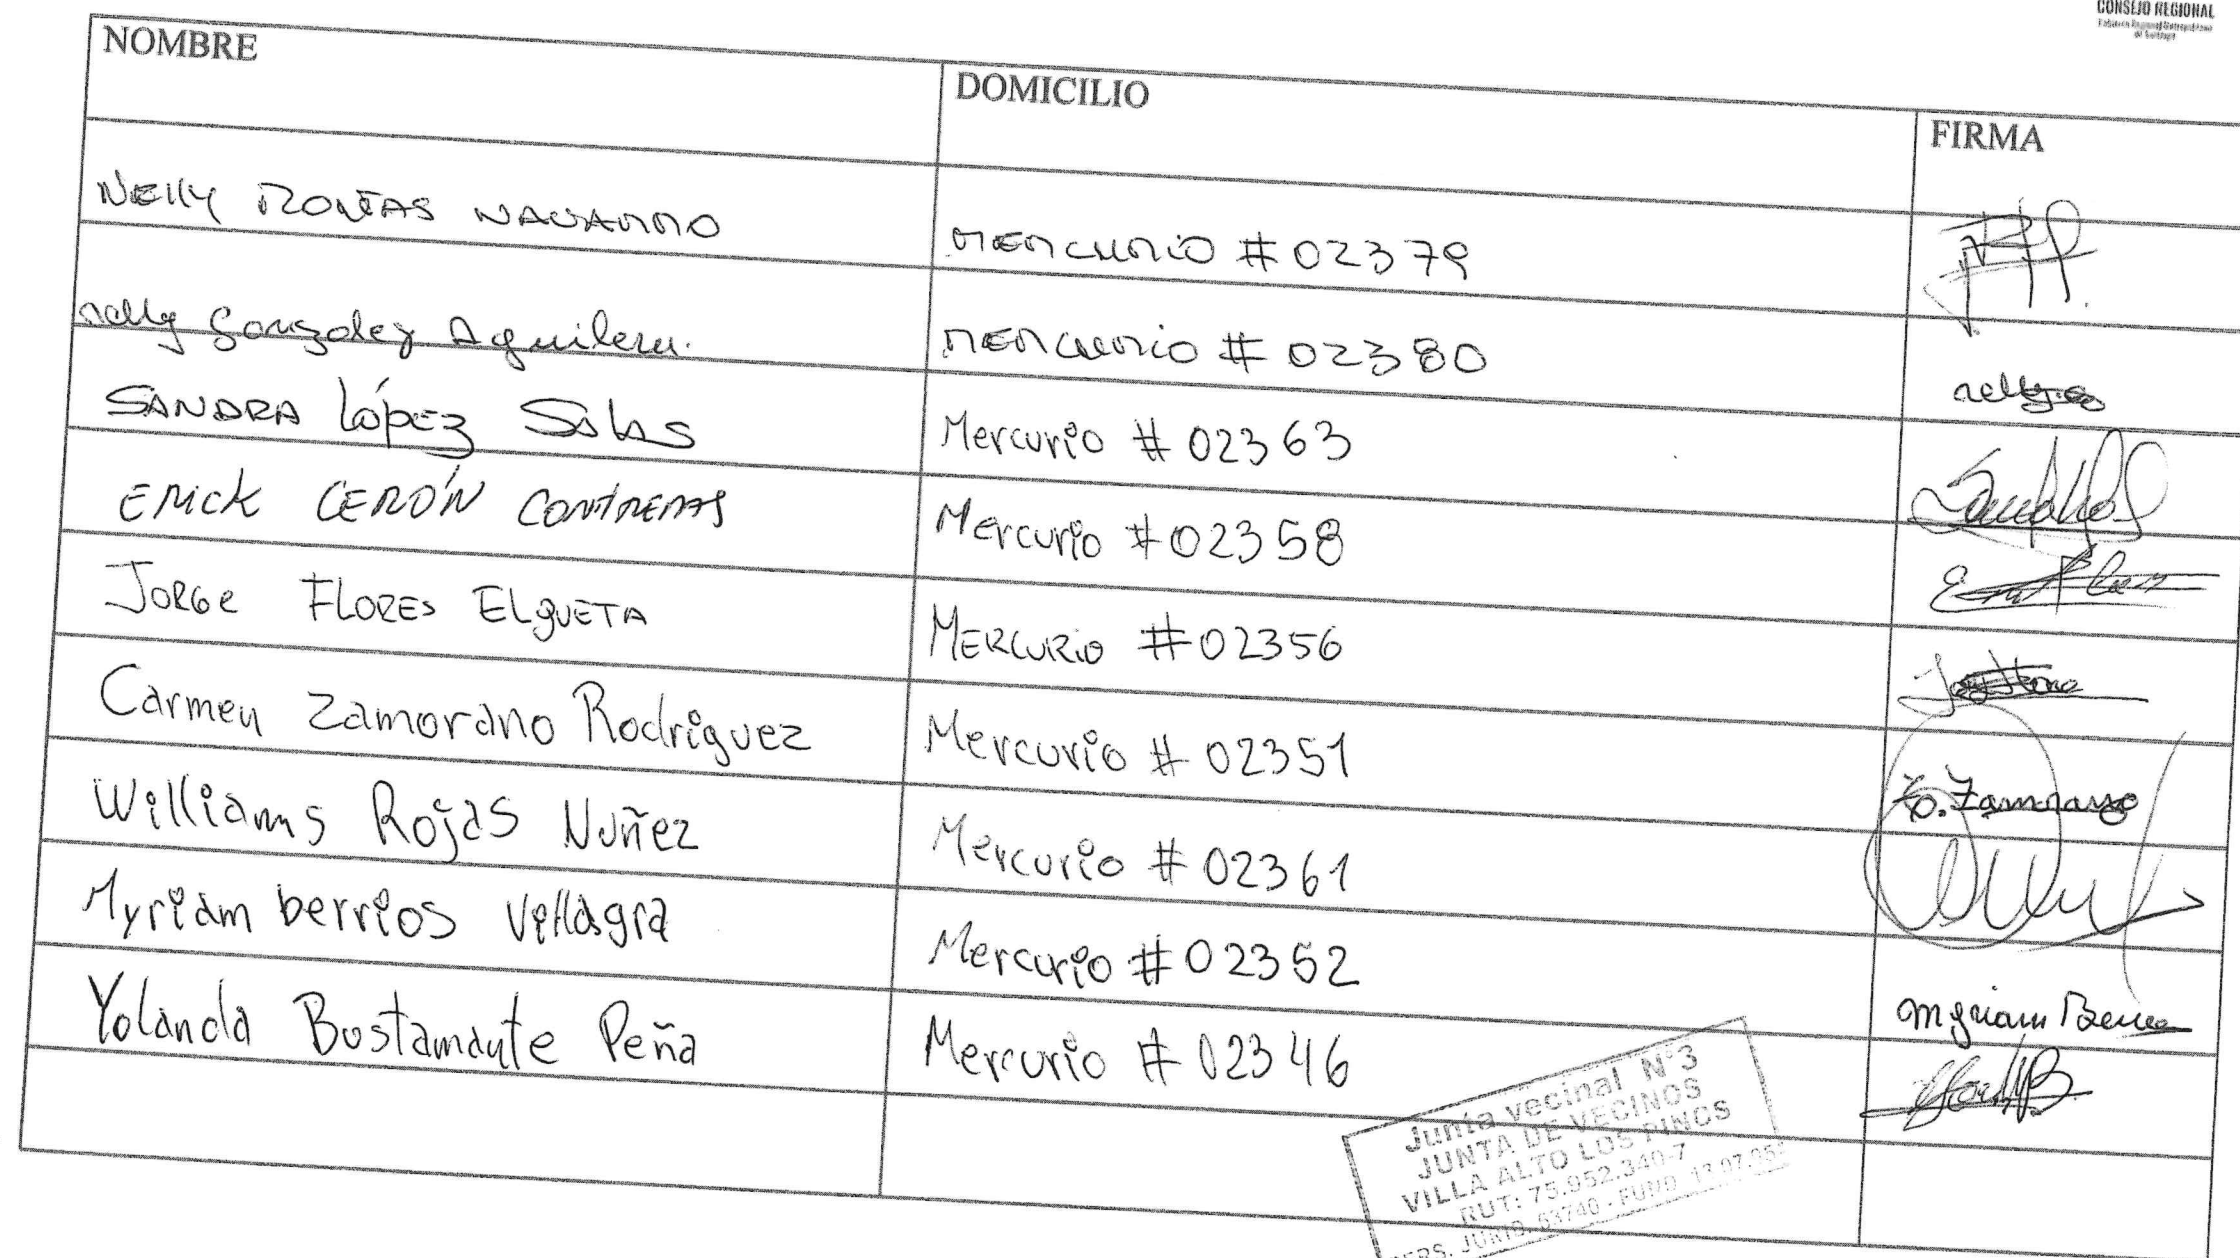 CONSEJO REGIONAL
NOMBRE DOMICILIO FIRMA
NELLY NAVARRO MERCURIO # 02379
Nelly Gonzalez Aguilera. MERCURIO # 02380 Nelly
SANDRA LÓPEZ Salas Mercurio # 02363
ERICK CERÓN CONTRERAS Mercurio # 02358
JORGE FLORES ELGUETA MERCURIO # 02356
Carmen Zamorano Rodriguez Mercurio # 02351 Zamorano
Williams Rojas Nuñez Mercurio # 02361
Myriam berrios Villagra Mercurio # 02352 Myriam
Yolanda Bustamante Peña Mercurio # 02346
Junta vecinal N°3
JUNTA DE VECINOS
VILLA ALTO LOS PINOS
RUT: 75.952.340-7
PERS. JURID. 53740 - FUND.